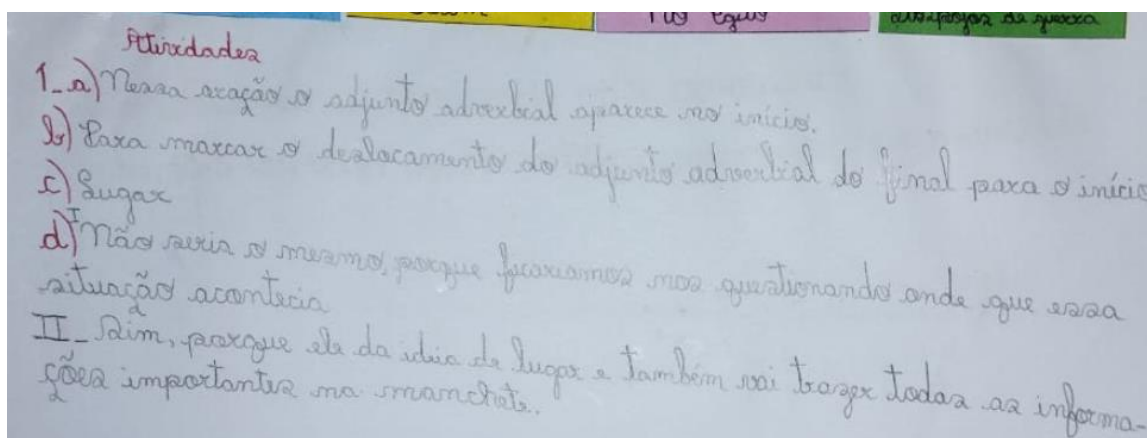 no egus
despojos de guerra
Atividades
1_ a) Nessa oração o adjunto adverbial aparece no início.
b) Para marcar o deslocamento do adjunto adverbial do final para o início
c) Lugar
d) I Não seria o mesmo, porque ficariamos nos questionando onde que essa
situação acontecia
II_ Sim, porque ele da idéia de lugar e também vai trazer todas as informa-
ções importantes na manchete.